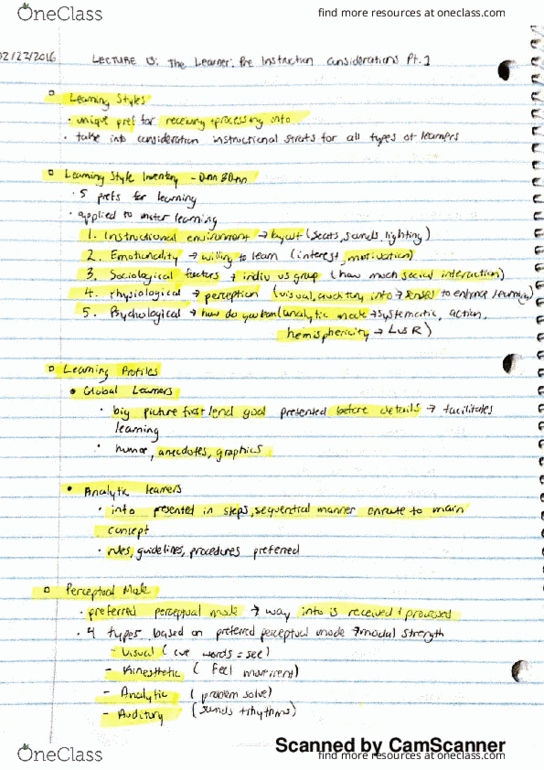 OneClass
find more resources at oneclass.com
02/22/2016 LECTURE 13: The Learner: Pre Instruction Considerations Pt. 1
Learning Styles
• unique pref for receiving + processing info
• take into consideration instructional strats for all types of learners
Learning Style Inventory - Dunn & Dunn
• 5 prefs for learning
• applied to motor learning
1. Instructional environment → layout (seats, sounds, lighting)
2. Emotionality → willing to learn (interest, motivation)
3. Sociological factors → indiv vs group (how much social interaction)
4. Physiological → perception (visual, auditory info → senses to enhance learning)
5. Psychological → how do you (analytic mode → systematic, action,
hemisphericity → L vs R)
Learning Profiles
• Global Learners
• big picture first/end goal presented before details → facilitates
learning
• humor, anecdotes, graphics
• Analytic learners
• info presented in steps, sequential manner enroute to main
concept
• rules, guidelines, procedures preferred
Perceptual Mode
• preferred perceptual mode → way info is received + processed
• 4 types based on preferred perceptual mode → modal strength
- Visual (cue words = see)
- Kinesthetic (feel movement)
- Analytic (problem solve)
- Auditory (sounds + rhythms)
Scanned by CamScanner
OneClass
find more resources at oneclass.com